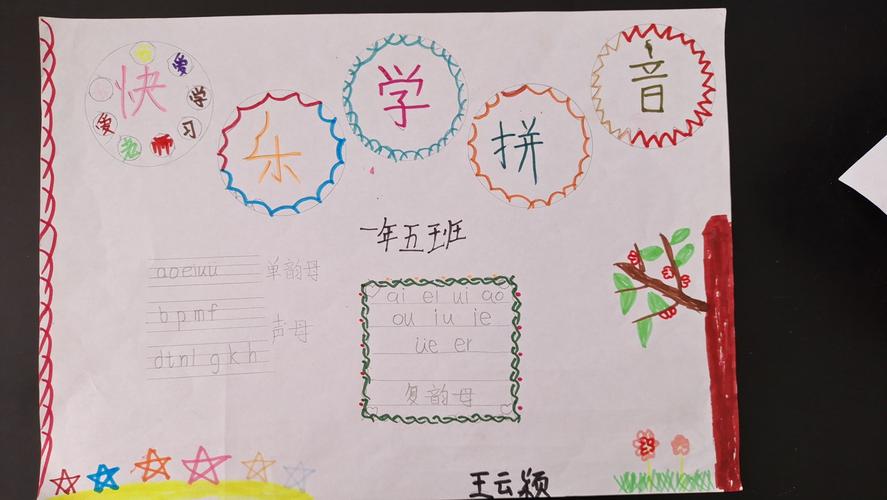 快乐学拼音
爱学习
爱老师
一年五班
aoeiuü 单韵母
bpmf
声母
dtnl gkh
ai ei ui ao
ou iu ie
üe er
复韵母
王云颍